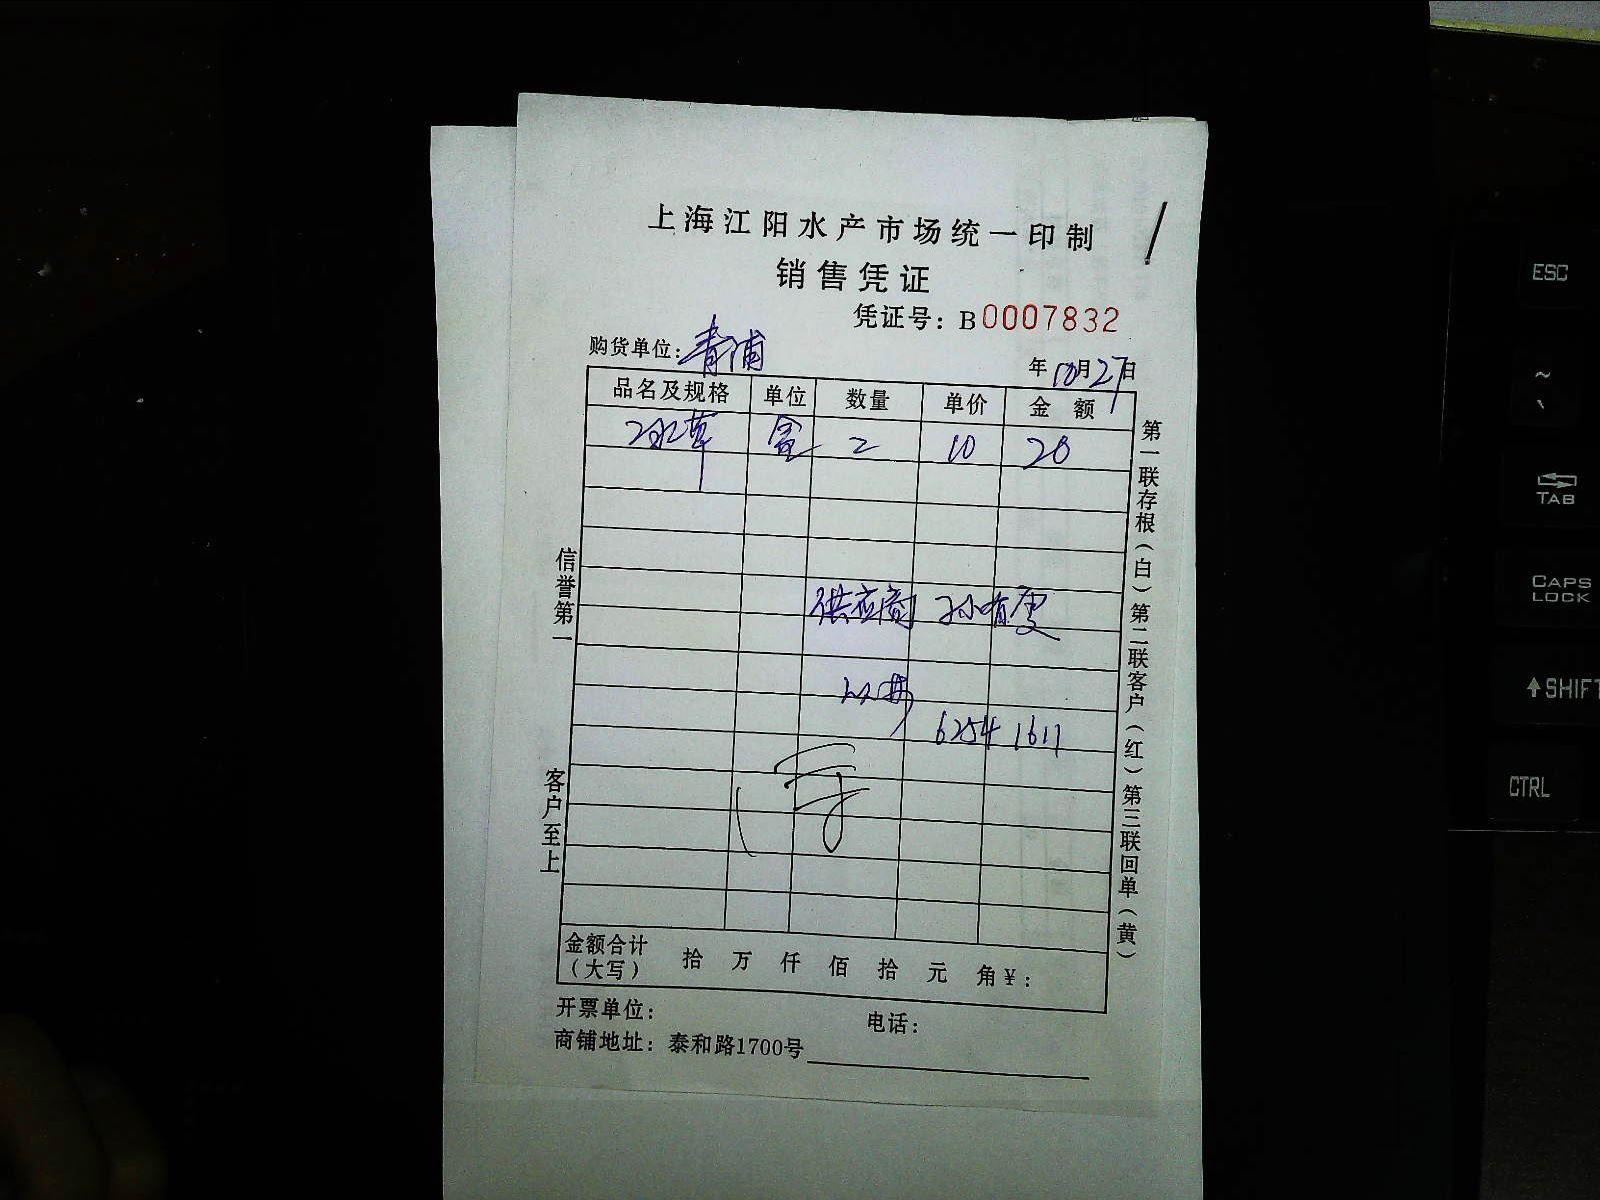 上海江阳水产市场统一印制
销售凭证
凭证号：B0007832
购货单位：青浦
年10月27日
品名及规格 单位 数量 单价 金额
冰草 盒 2 10 20
供应商 孙有雯
6254 1611
金额合计（大写） 拾 万 仟 佰 拾 元 角 ¥：
开票单位： 电话：
商铺地址：泰和路1700号
信誉第一 客户至上
第一联存根（白）第二联客户（红）第三联回单（黄）
ESC
~
、
TAB
CAPS LOCK
SHIFT
CTRL